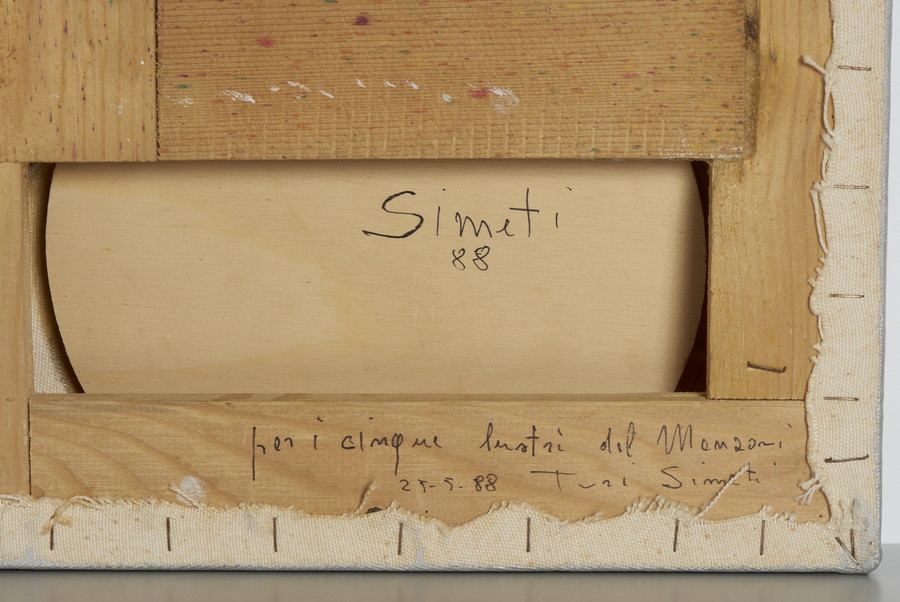 Simeti
88
per i cinque lustri del Manzoni
25-5-88 Turi Simeti